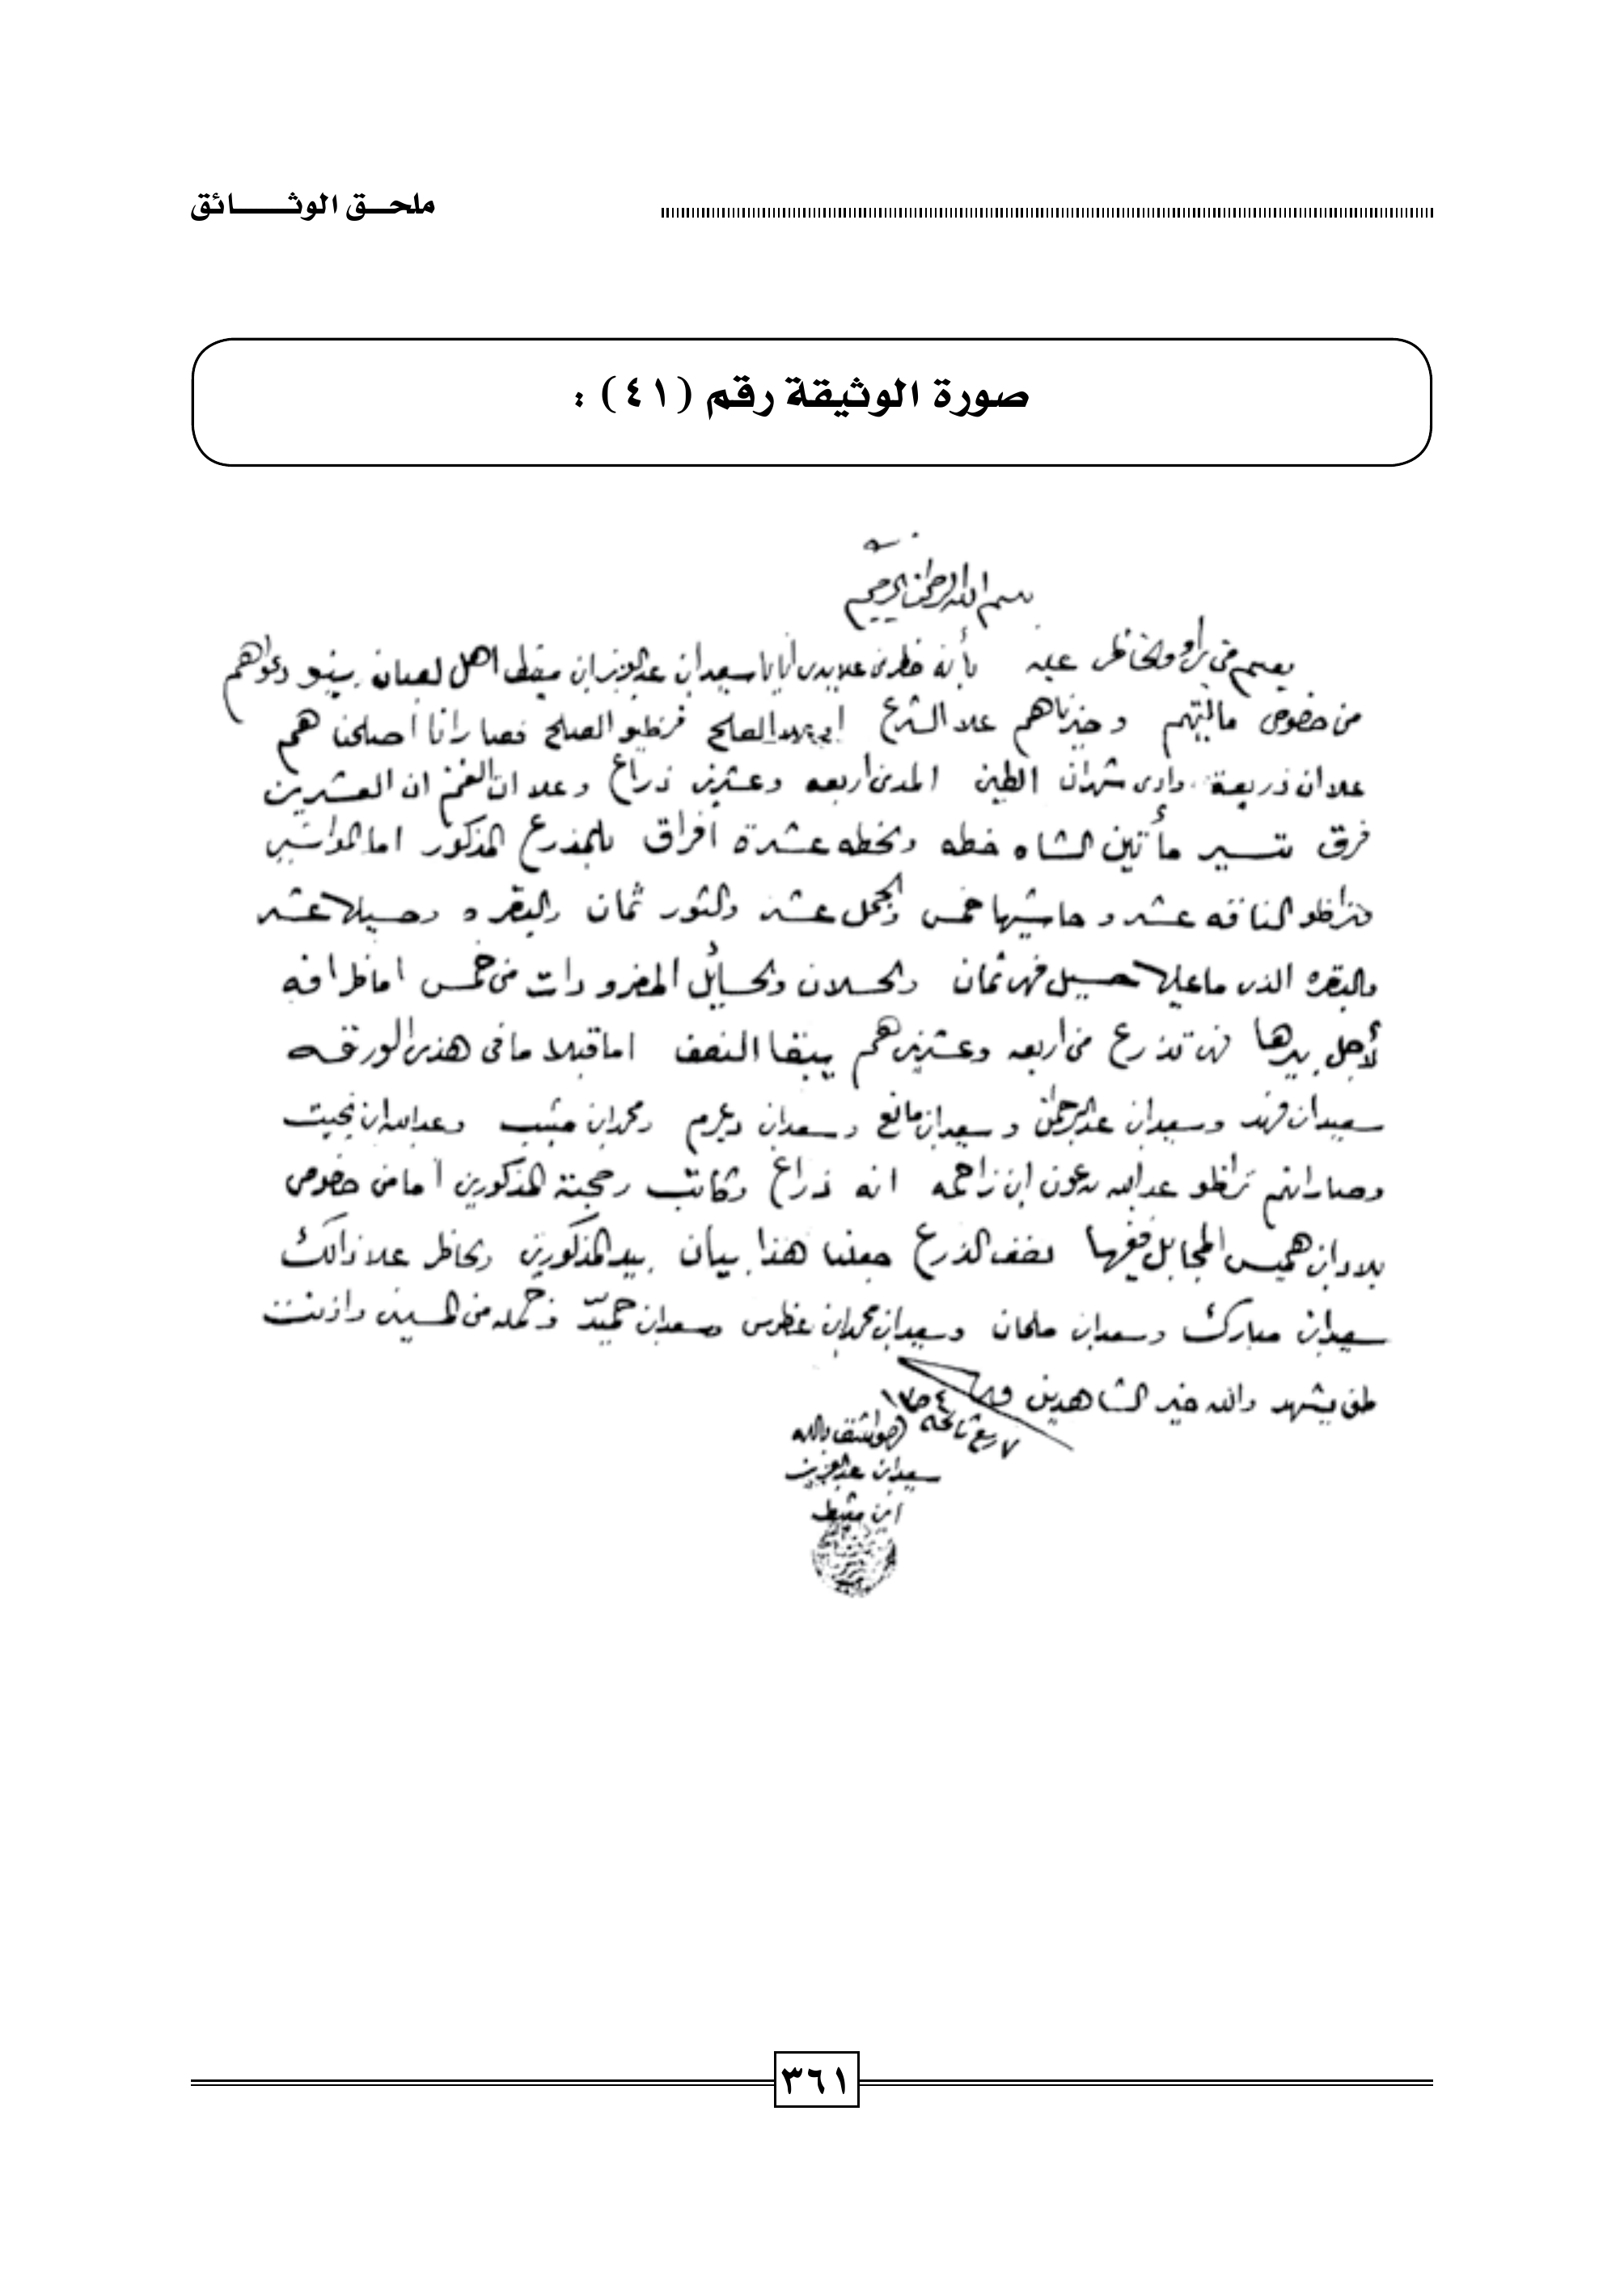 ملحق الوثائق
صورة الوثيقة رقم (٤١) :
بسم الله الرحمن الرحيم
يعلم من يراه والحاظر عليه بأنه حظرن علا يدي أنا يا سعيد ابن عبدالعزيز ابن مشيط اهل لعبان بينو دعواهم
من خصوص ماليتهم وخيرناهم علا الشرع الصلح فرظيو الصلح فصار انا أصلحنا هم
علا ان ذريعة وادي شهران الطين المدن اربعه وعشرين ذراع وعلا ان الغنم ان العشرين
فرق تسير مأتين الشاه خطه ولخطه عشرة افراق بالمذرع المذكور اما المواشي
فتراظو الناقه عشر وحاشيها خمس والجمل عشر والثور ثمان والبقره وحسيلها عشر
والبقره الذي ما عليها حسيل فهي ثمان والحسلان ولحسايل المفرودات من خمس اما ظرافه
لأجل بيرها فهي تذرع من اربعه وعشرين هم يبقا النصف اما قبلا ما في هذي الورقه
سعيد ابن فهد وسعيد ابن عبدالرحمن وسعيد ابن مانع وسعد ابن دعرم ومحمد ابن مشبب وعبدالله ابن بخيت
وصار انهم تراظو عبدالله ابن زاحمه انه ذراع وكاتب المذكورين أما من خصوص
بلاد ابن هميس المجابل ففيها نصف الذرع جعلنا هذا بيان بيد المذكورين ولحاظر علا ذالك
سعيد ابن مبارك وسعد ابن ملحان وسعيد ابن محمد ابن وسعد ابن حميد من المسلمين واذنت
من يشهد والله خير الشاهدين
٧ ربيع ثاني ١٣٥٤
الواثق بالله
سعيد ابن عبدالعزيز
ابن مشيط
٣٦١